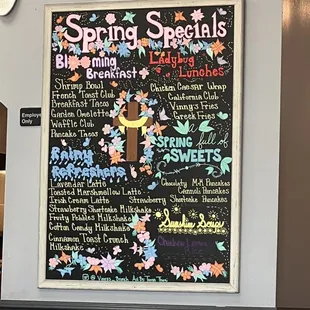 Spring Specials
Blooming
Breakfast
Ladybug
Lunches
Shrimp Bowl
French Toast Club
Breakfast Tacos
Garden Omelette
Waffle Club
Pancake Tacos
Chicken Caesar Wrap
California Club
Vinny's Fries
Greek Fries
SPRING full of
SWEETS
Rainy
Refreshers
Lavendar Latte
Toasted Marshmallow Latte
Irish Cream Latte
Strawberry Shortcake Milkshake
Fruity Pebbles Milkshake
Cotton Candy Milkshake
Cinnamon Toast Crunch
Milkshake
Chocolaty M&M Pancakes
Cannoli Pancakes
Strawberry Shortcake Pancakes
Sunshine Soups
Chicken Lemon
Employees
Only